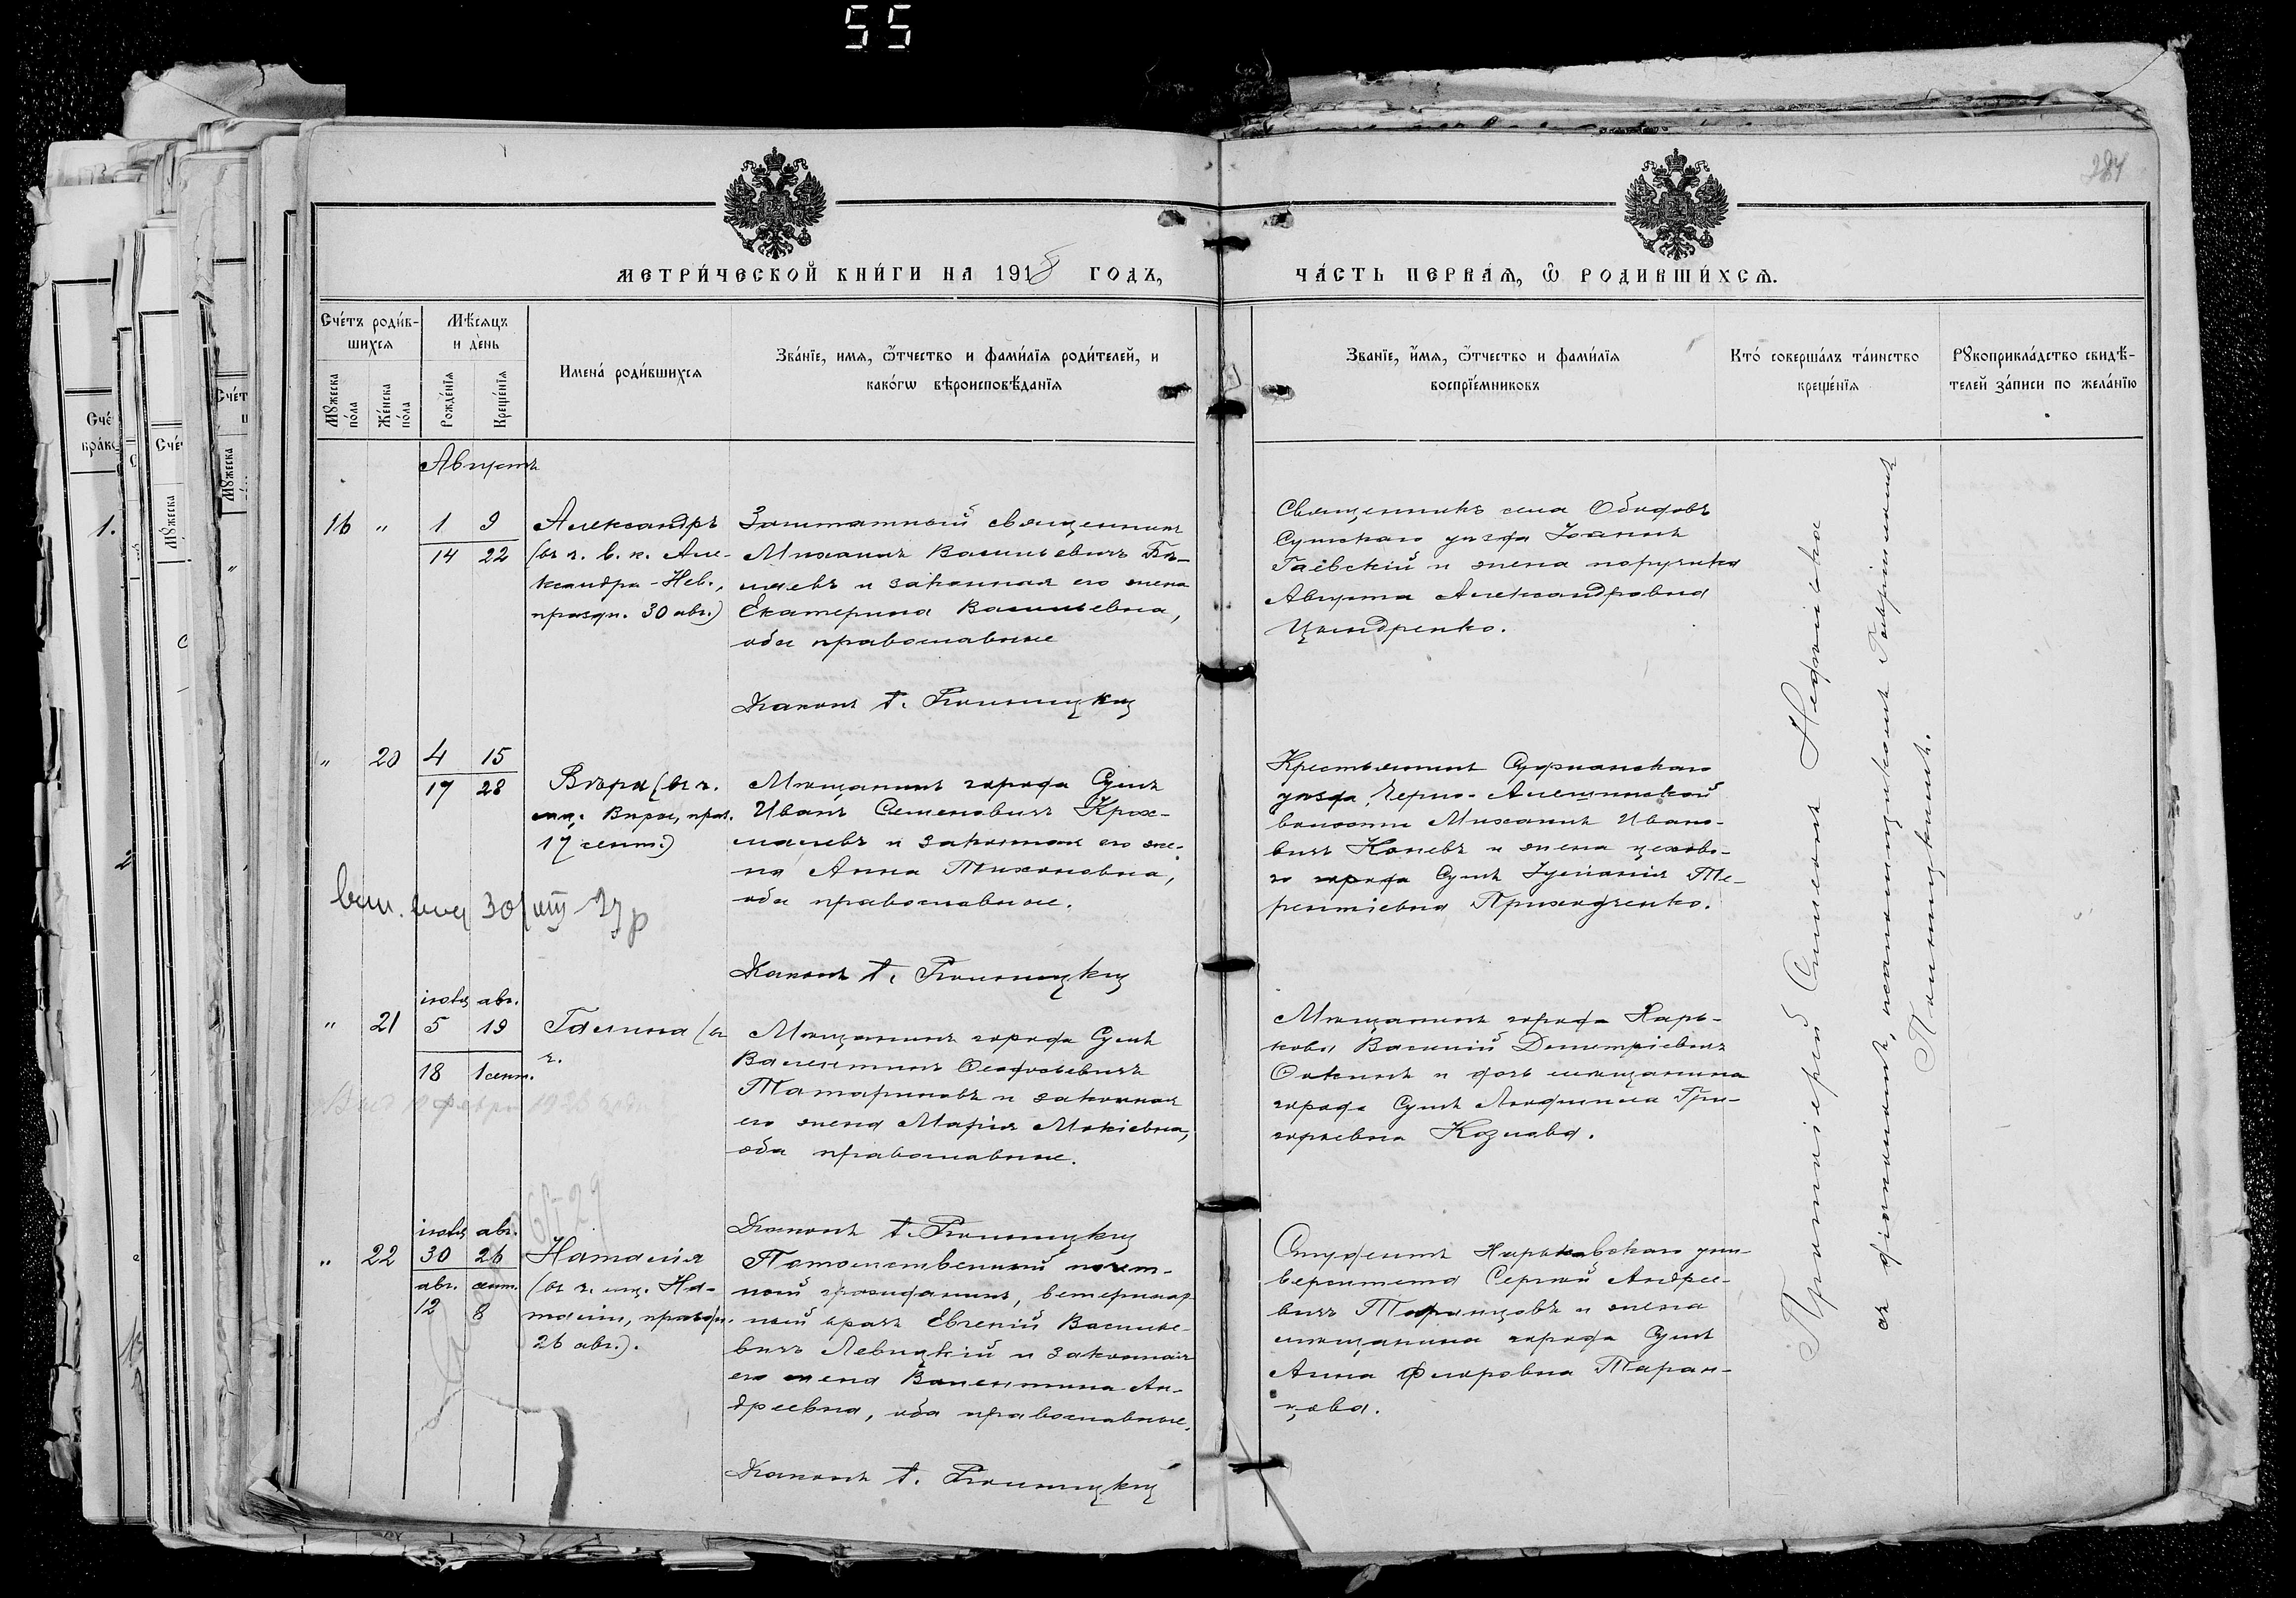 55
284
МЕТРИ́ЧЕСКОЙ КНИ́ГИ НА 1918 ГОДЪ,
ЧА́СТЬ ПЕРВАѦ, Ѽ РОДИВШИ́ХСѦ.
Сче́тъ роди́в-
шихсѧ
Мꙋжеска
по́ла
Же́нска
по́ла
Мѣ́сѧцъ
и де́нь
Рожде́нїѧ
Креще́нїѧ
Имена́ роди́вшихсѧ
Зва́нїе, имѧ, ѽтчество и фами́лїѧ роди́телей, и
како́гѡ вѣроисповѣ́данїѧ
Зва́нїе, и́мѧ, ѽтчество и фами́лїѧ
воспрїе́мниковъ
Кто́ соверша́лъ та́инство
креще́нїѧ
Рꙋкоприкла́дство свидѣ́-
телей за́писи по жела́нїю
Августъ
16 " 1 9
14 22
Александръ
(въ ч. в. к. Але-
ксандра-Нев.,
праздн. 30 авг.)
Заштатный священникъ
Михаилъ Васильевичъ Бѣ-
ляевъ и законная его жена
Екатерина Васильевна,
оба православные
Священникъ села Ободовъ
Сумскаго уѣзда Іоаннъ
Гаевскій и жена поручика
Августа Александровна
Цындренко.
" 20 4 15
17 28
Вѣра (въ ч.
мц. Вѣры, праз.
17 сент.)
Мѣщанинъ города Сумъ
Иванъ Семеновичъ Крох-
малевъ и законная его же-
на Анна Тихоновна,
оба православные.
Крестьянинъ Суджанскаго
уѣзда, Черно-Алешинской
волости Михаилъ Ивано-
вичъ Коневъ и жена цехово-
го города Сумъ Іуліанія Те-
рентіевна Приходченко.
" 21
іюля авг.
5 19
18 1 сент.
Галина (въ
ч.
Мѣщанинъ города Сумъ
Валентинъ
Татариновъ и законная
его жена Марія Мокіевна,
оба православные.
Мѣщанинъ города Харь-
кова Василій Димитріевичъ
и дочь мѣщанина
города Сумъ Людмила Гри-
горьевна Козлова.
" 22
іюля авг.
30 26
авг. сент.
12 8
Наталія
(въ ч. мц. На-
таліи, праздн.
26 авг.).
Потомственный почет-
ный гражданинъ, ветеринар-
ный врачъ Евгеній Василье-
вичъ Левицкій и законная
его жена Валентина Ан-
дреевна, оба православные.
Студентъ Харьковскаго уни-
верситета Сергѣй Андрее-
вичъ Таранцовъ и жена
мѣщанина города Сумъ
Анна Флоровна Таран-
цова.
Протоіерей Симеонъ
съ діакономъ,